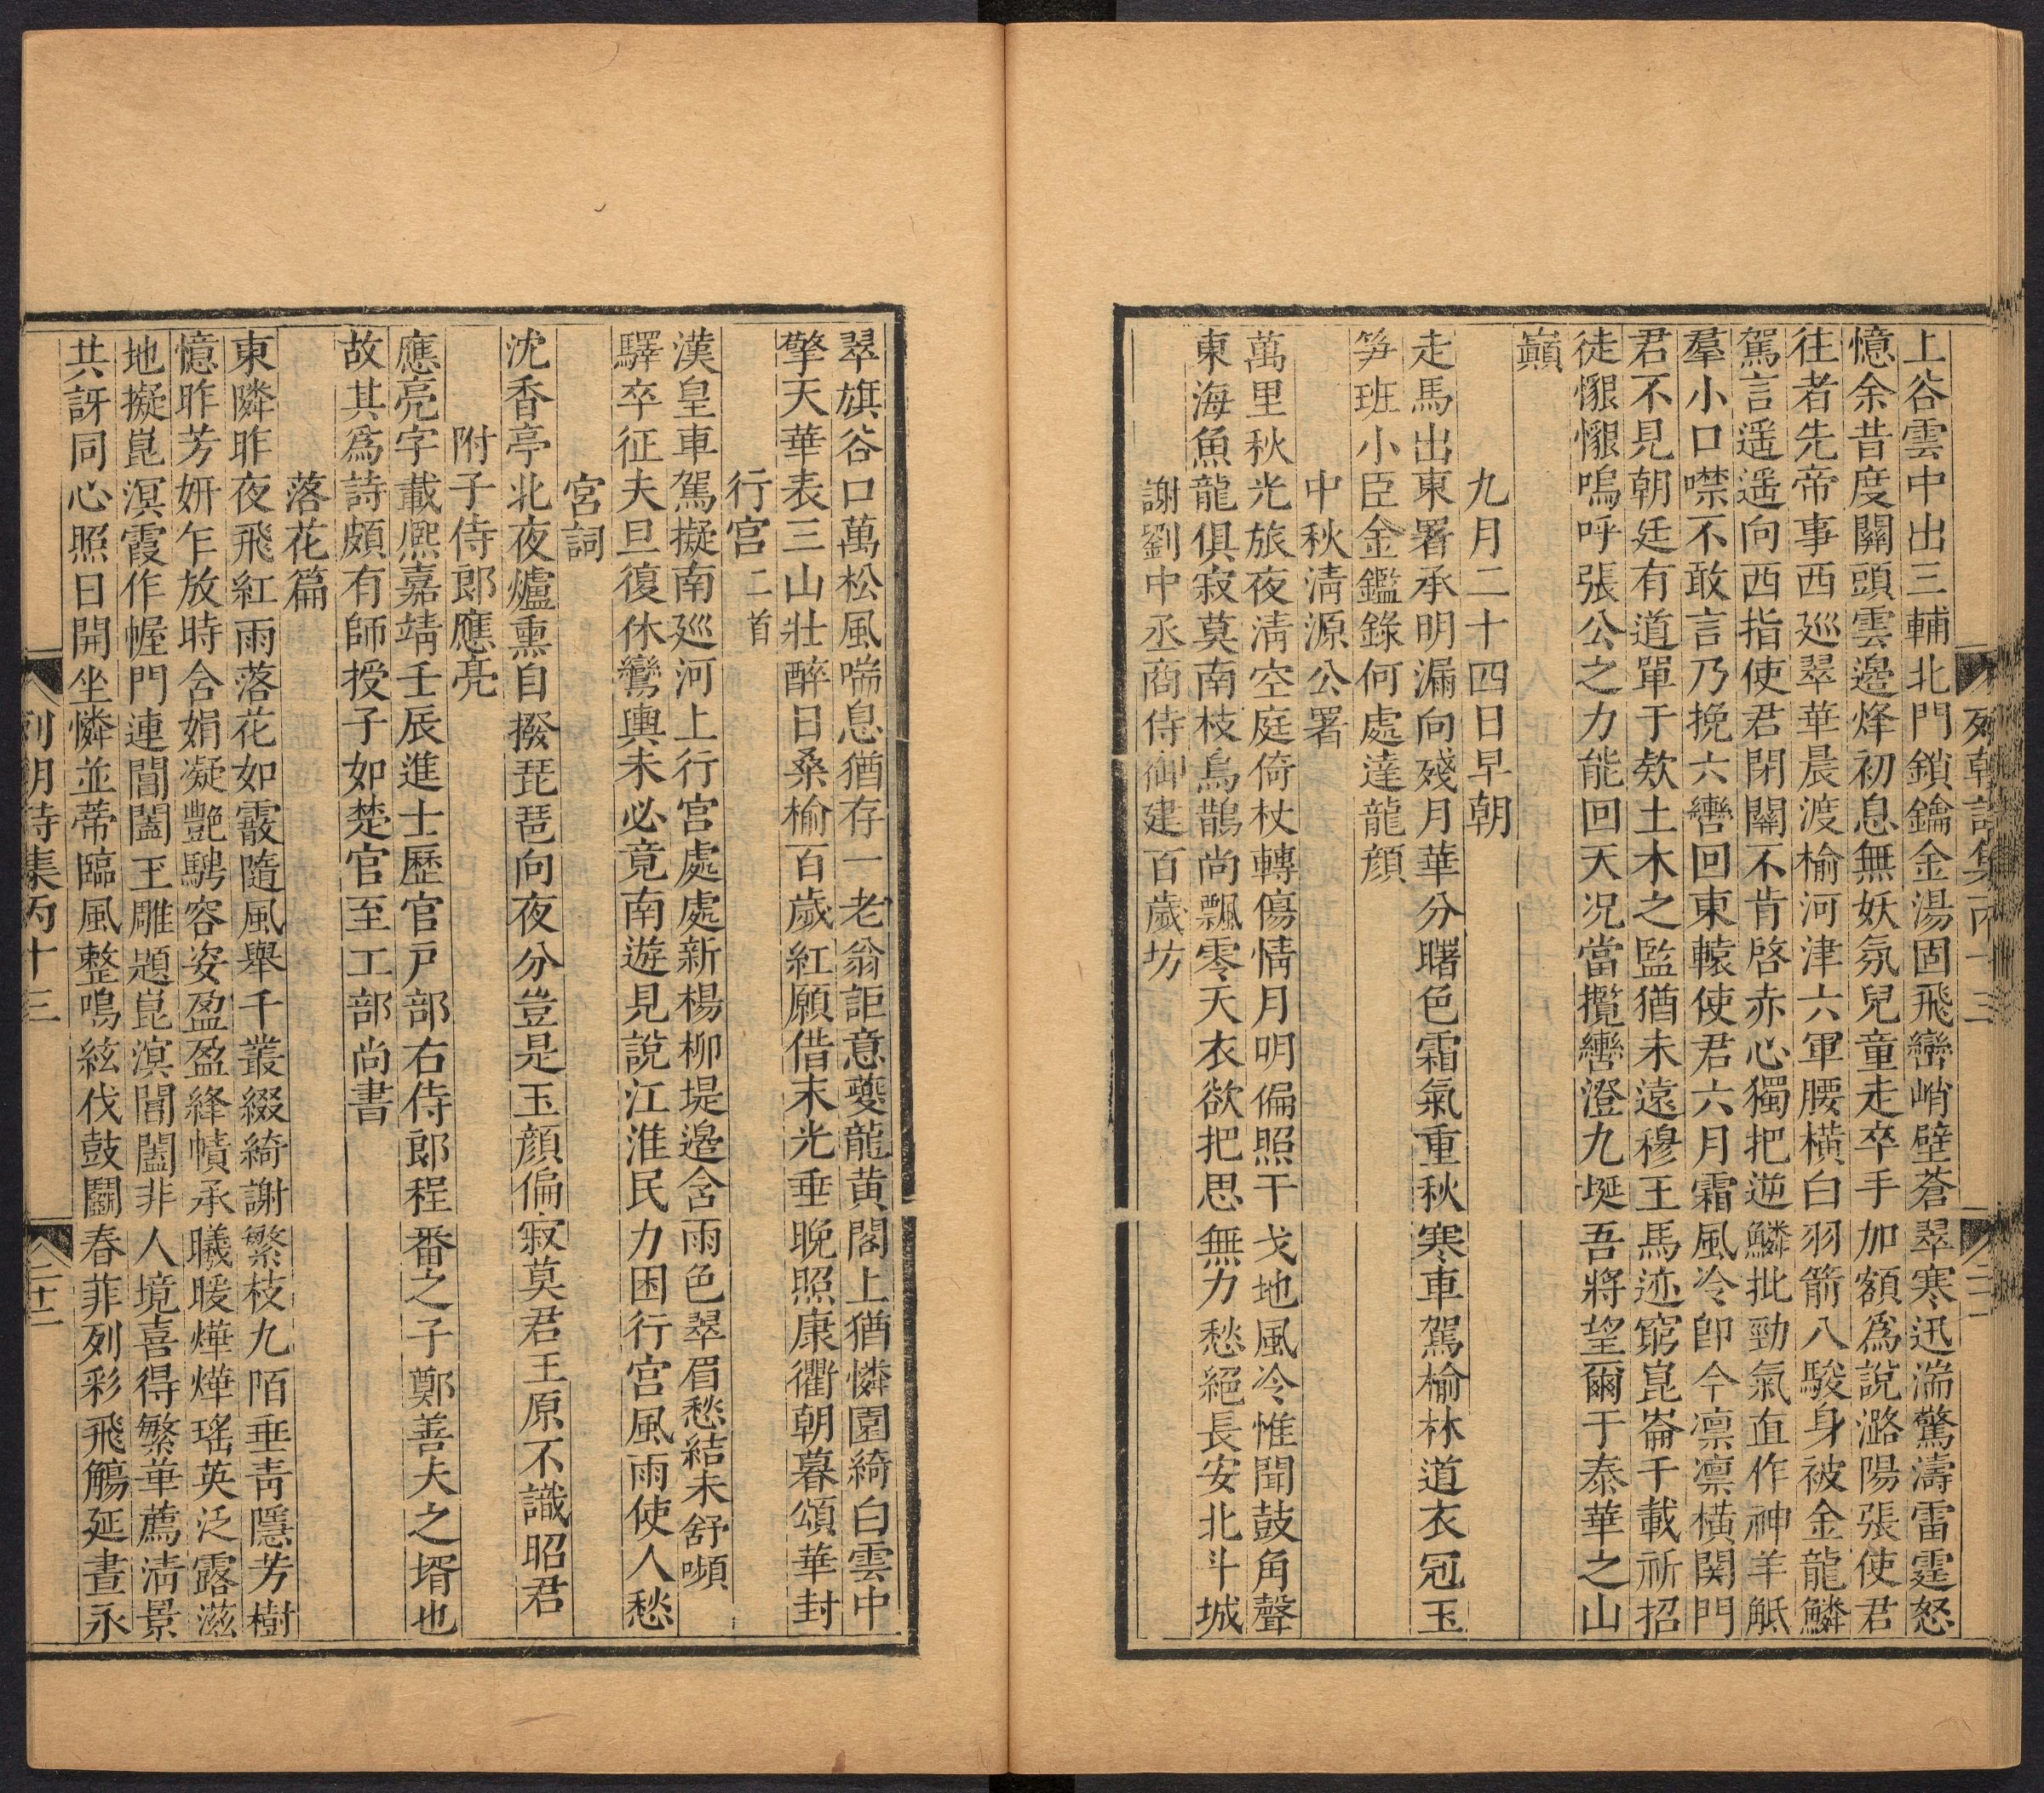 上谷雲中出三輔北門鎖鑰金湯固飛巒峭壁蒼翠寒迅湍驚濤雷霆怒
憶余昔度關頭雲邉烽初息無妖氛兒童走卒手加額爲說潞陽張使君
往者先帝事西廵翠華晨渡榆河津六軍腰橫白羽箭八駿身被金龍鱗
駕言遥遥向西指使君閉關不肯啓赤心獨把逆鱗批勁氣直作神羊觝
羣小口噤不敢言乃挽六轡回東轅使君六月霜風冷卽今凛凛橫関門
君不見朝廷有道單于欵土木之監猶未遠穆王馬迹窮崑崙千載祈招
徒懇懇嗚呼張公之力能回天况當攬轡澄九埏吾將望爾于泰華之山
巔
九月二十四日早朝
走馬出東署承明漏向殘月華分曙色霜氣重秋寒車駕榆林道衣冠玉
笋班小臣金鑑錄何處達龍顔
中秋淸源公署
萬里秋光旅夜淸空庭倚杖轉傷情月明偏照干戈地風冷惟聞鼓角聲
東海魚龍俱寂莫南枝烏鵲尚飄零天衣欲把思無力愁絕長安北斗城
謝劉中丞商侍御建百歲坊
翠旗谷口萬松風喘息猶存一老翁詎意夔龍黃閣上猶憐園綺白雲中
擎天華表三山壯醉日桑榆百歲紅願借末光垂晚照康衢朝暮頌華封
行宮二首
漢皇車駕擬南廵河上行宮處處新楊柳堤邉含雨色翠眉愁結未舒嚬
驛卒征夫旦復休鸞輿未必竟南遊見說江淮民力困行宮風雨使人愁
宮詞
沈香亭北夜爐熏自撥琵琶向夜分豈是玉顔偏寂莫君王原不識昭君
附子侍郎應亮
應亮字載熈嘉靖壬辰進士歷官戸部右侍郎程番之子鄭善夫之壻也
故其爲詩頗有師授子如楚官至工部尚書
落花篇
東隣昨夜飛紅雨落花如霰隨風舉千叢綴綺謝繁枝九陌垂靑隱芳樹
憶昨芳妍乍放時含娟凝艷騁容姿盈盈絳幘承曦暖燁燁瑤英泛露滋
地擬崑溟霞作幄門連閶闔玉雕題崑溟閶闔非人境喜得繁華薦淸景
共訝同心照日開坐憐並蒂臨風整鳴絃伐鼓鬬春菲列彩飛觴延晝永
列朝詩集丙十三